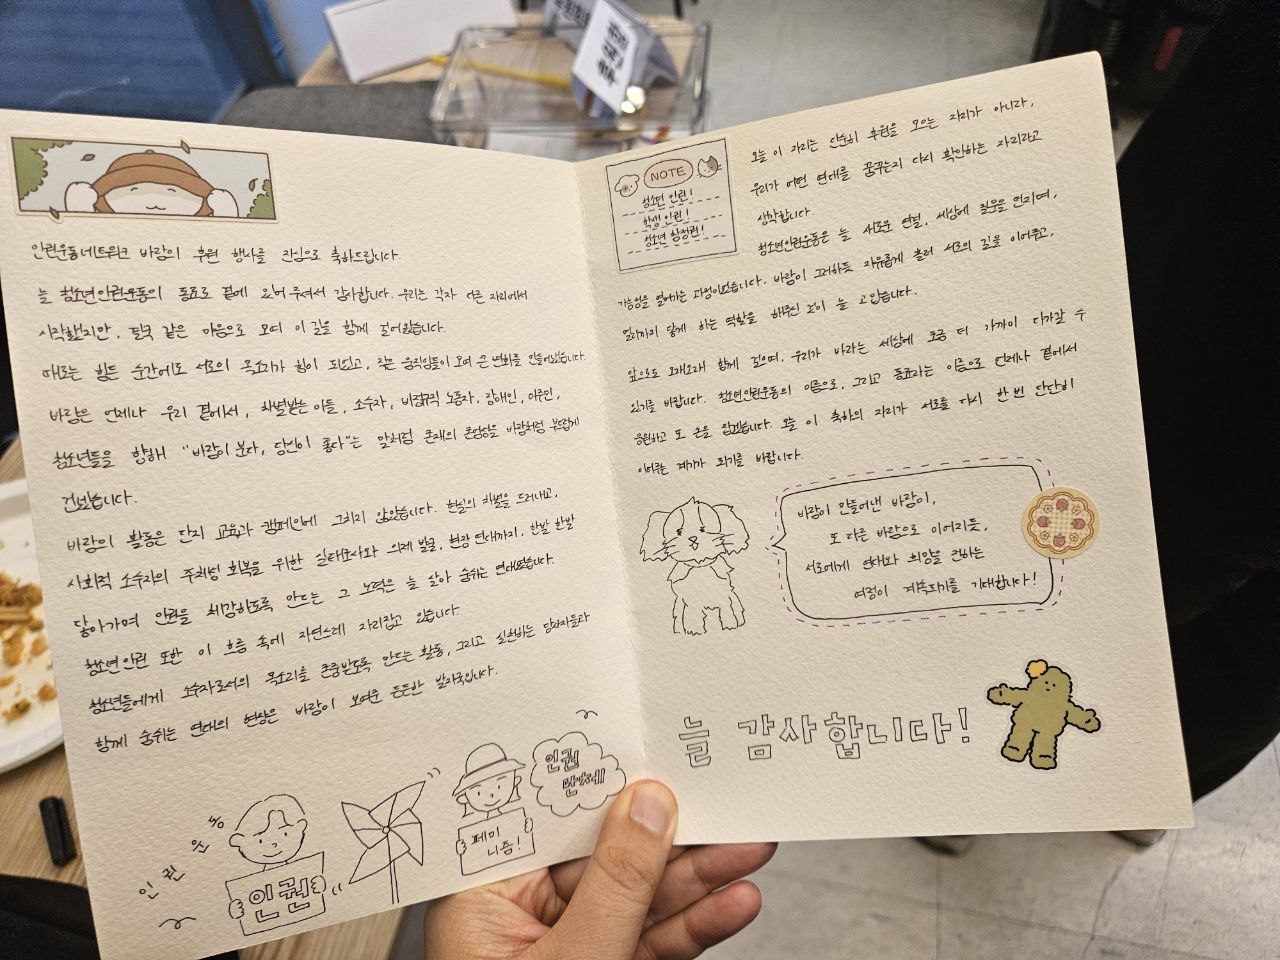 인권운동네트워크 바람의 후원 행사를 진심으로 축하드립니다.
늘 청소년인권운동의 동료로 곁에 있어 주셔서 감사합니다. 우리는 각자 다른 자리에서
시작했지만, 결국 같은 마음으로 모여 이 길을 함께 걸어왔습니다.
때로는 힘든 순간에도 서로의 목소리가 힘이 되었고, 작은 움직임들이 모여 큰 변화를 만들어냈습니다.
바람은 언제나 우리 곁에서, 차별받는 이들, 소수자, 비정규직 노동자, 장애인, 이주민,
청소년들을 향해 "바람이 분다, 당신이 좋다"는 말처럼 존재의 존엄성을 바람처럼 부드럽게
건넸습니다.
바람의 활동은 단지 교육과 캠페인에 그치지 않았습니다. 현실의 차별을 드러내고,
사회적 소수자의 주체성 회복을 위한 실태조사와 의제 발굴, 현장 연대까지, 한발 한발
닿아가며 인권을 체감하도록 만드는 그 노력은 늘 살아 숨쉬는 연대였습니다.
청소년인권 또한 이 흐름 속에 자연스레 자리잡고 있습니다.
청소년들에게 소수자로서의 목소리를 존중받도록 만드는 활동, 그리고 실천하는 당사자들과
함께 숨쉬는 연대의 현장은 바람이 보여준 든든한 발자국입니다.
인권천청
인권
페미
니즘!
인권
단체!
NOTE
청소년 인권!
학생 인권!
청소년 참정권!
오늘 이 자리는 단순히 후원을 모으는 자리가 아니라,
우리가 어떤 연대를 꿈꾸는지 다시 확인하는 자리라고
생각합니다.
청소년인권운동은 늘 새로운 연결, 세상에 질문을 던지며,
가능성을 열어가는 과정이었습니다. 바람이 그러하듯 자유롭게 흘러 서로의 길을 이어주고,
멀리까지 닿게 하는 역할을 해주신 것이 늘 고맙습니다.
앞으로도 오래오래 함께 걸으며, 우리가 바라는 세상에 조금 더 가까이 다가갈 수
있기를 바랍니다. 청소년인권운동의 이름으로, 그리고 동료라는 이름으로 언제나 곁에서
응원하고 또 손을 잡겠습니다. 오늘 이 축하의 자리가 서로를 다시 한 번 단단히
이어주는 계기가 되기를 바랍니다.
바람이 만들어낸 바람이,
또 다른 바람으로 이어지듯,
서로에게 연대와 희망을 전하는
여정이 계속되기를 기대합니다!
늘 감사합니다!